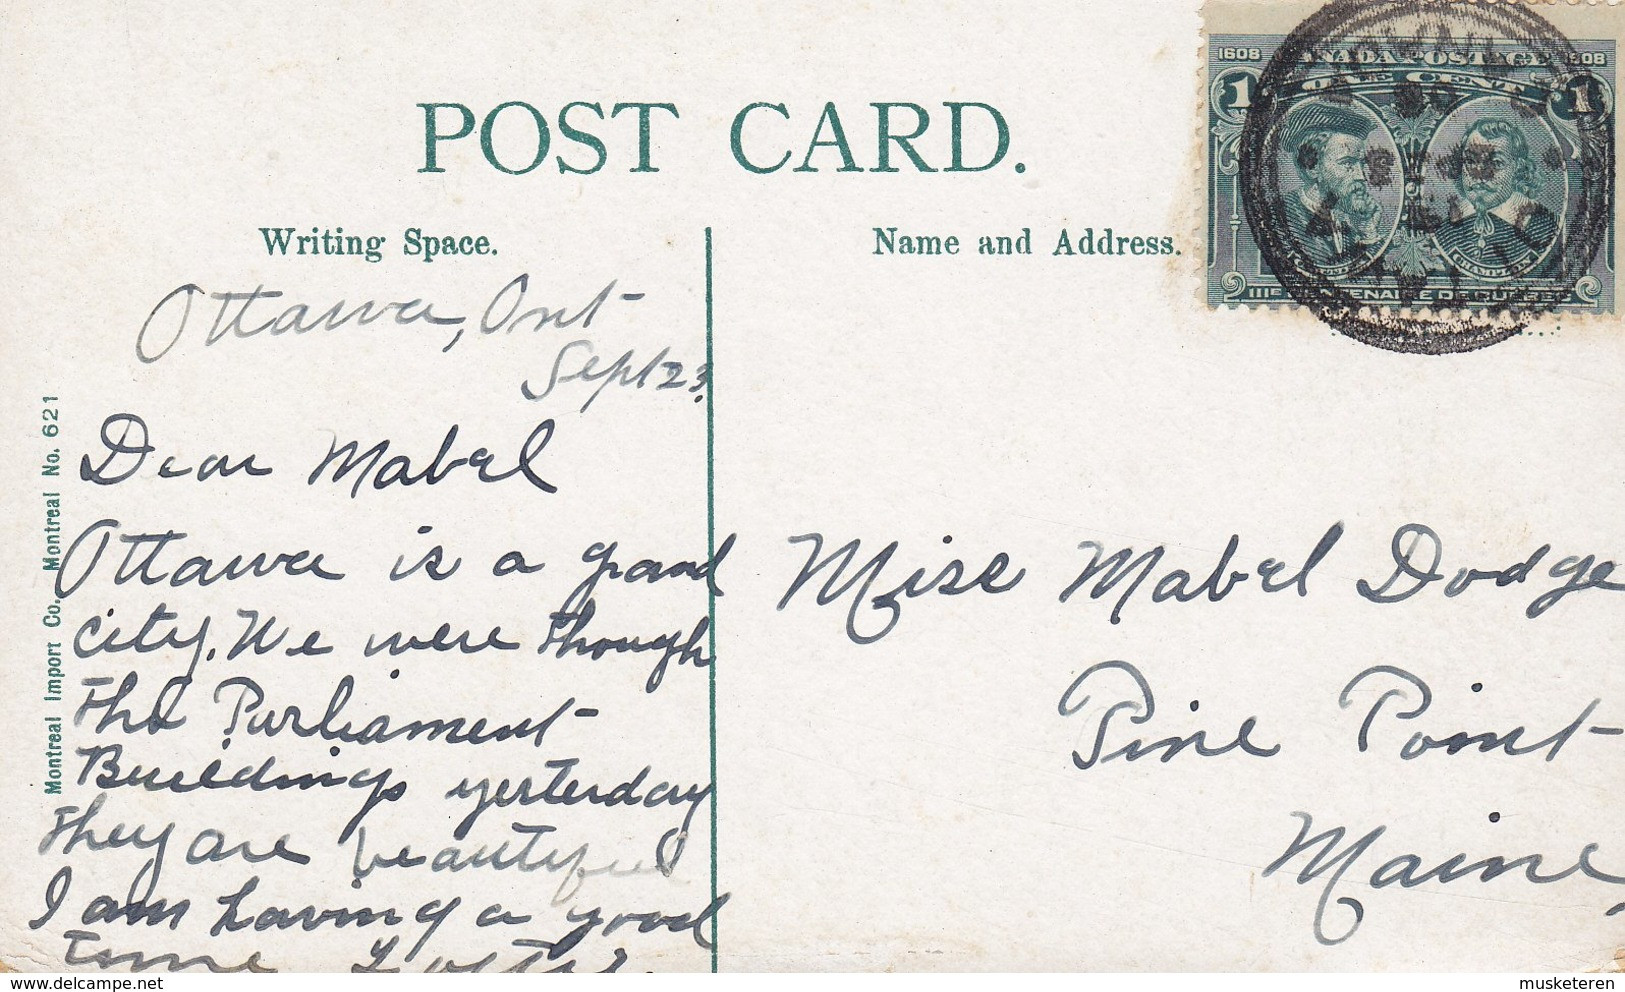 1608 CANADA POSTAGE 1908
ONE CENT
1 1
CHAMPLAIN
IIIE CENTENAIRE DE QUEBEC
POST CARD.
Writing Space.
Name and Address.
Ottawa, Ont
Sept 23
Dear Mabel
Ottawa is a grand
city. We were though
the Parliament
Buildings yesterday
They are beautiful
I am having a good
time
Miss Mabel Dodge
Pine Point
Maine
Montreal Import Co. Montreal No. 621
musketeren delcampe.net